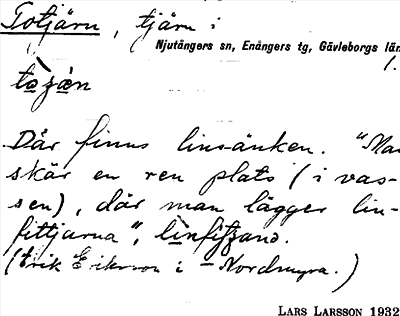 Totjärn, tjärn i
Njutångers sn, Enångers tg, Gävleborgs län
1.
Där finns linsänken. "Man
skär en ren plats (i vas-
sen), där man lägger lin-
fittjarna",
(Erik Eriksson i - Nordmyra.)
LARS LARSSON 1932